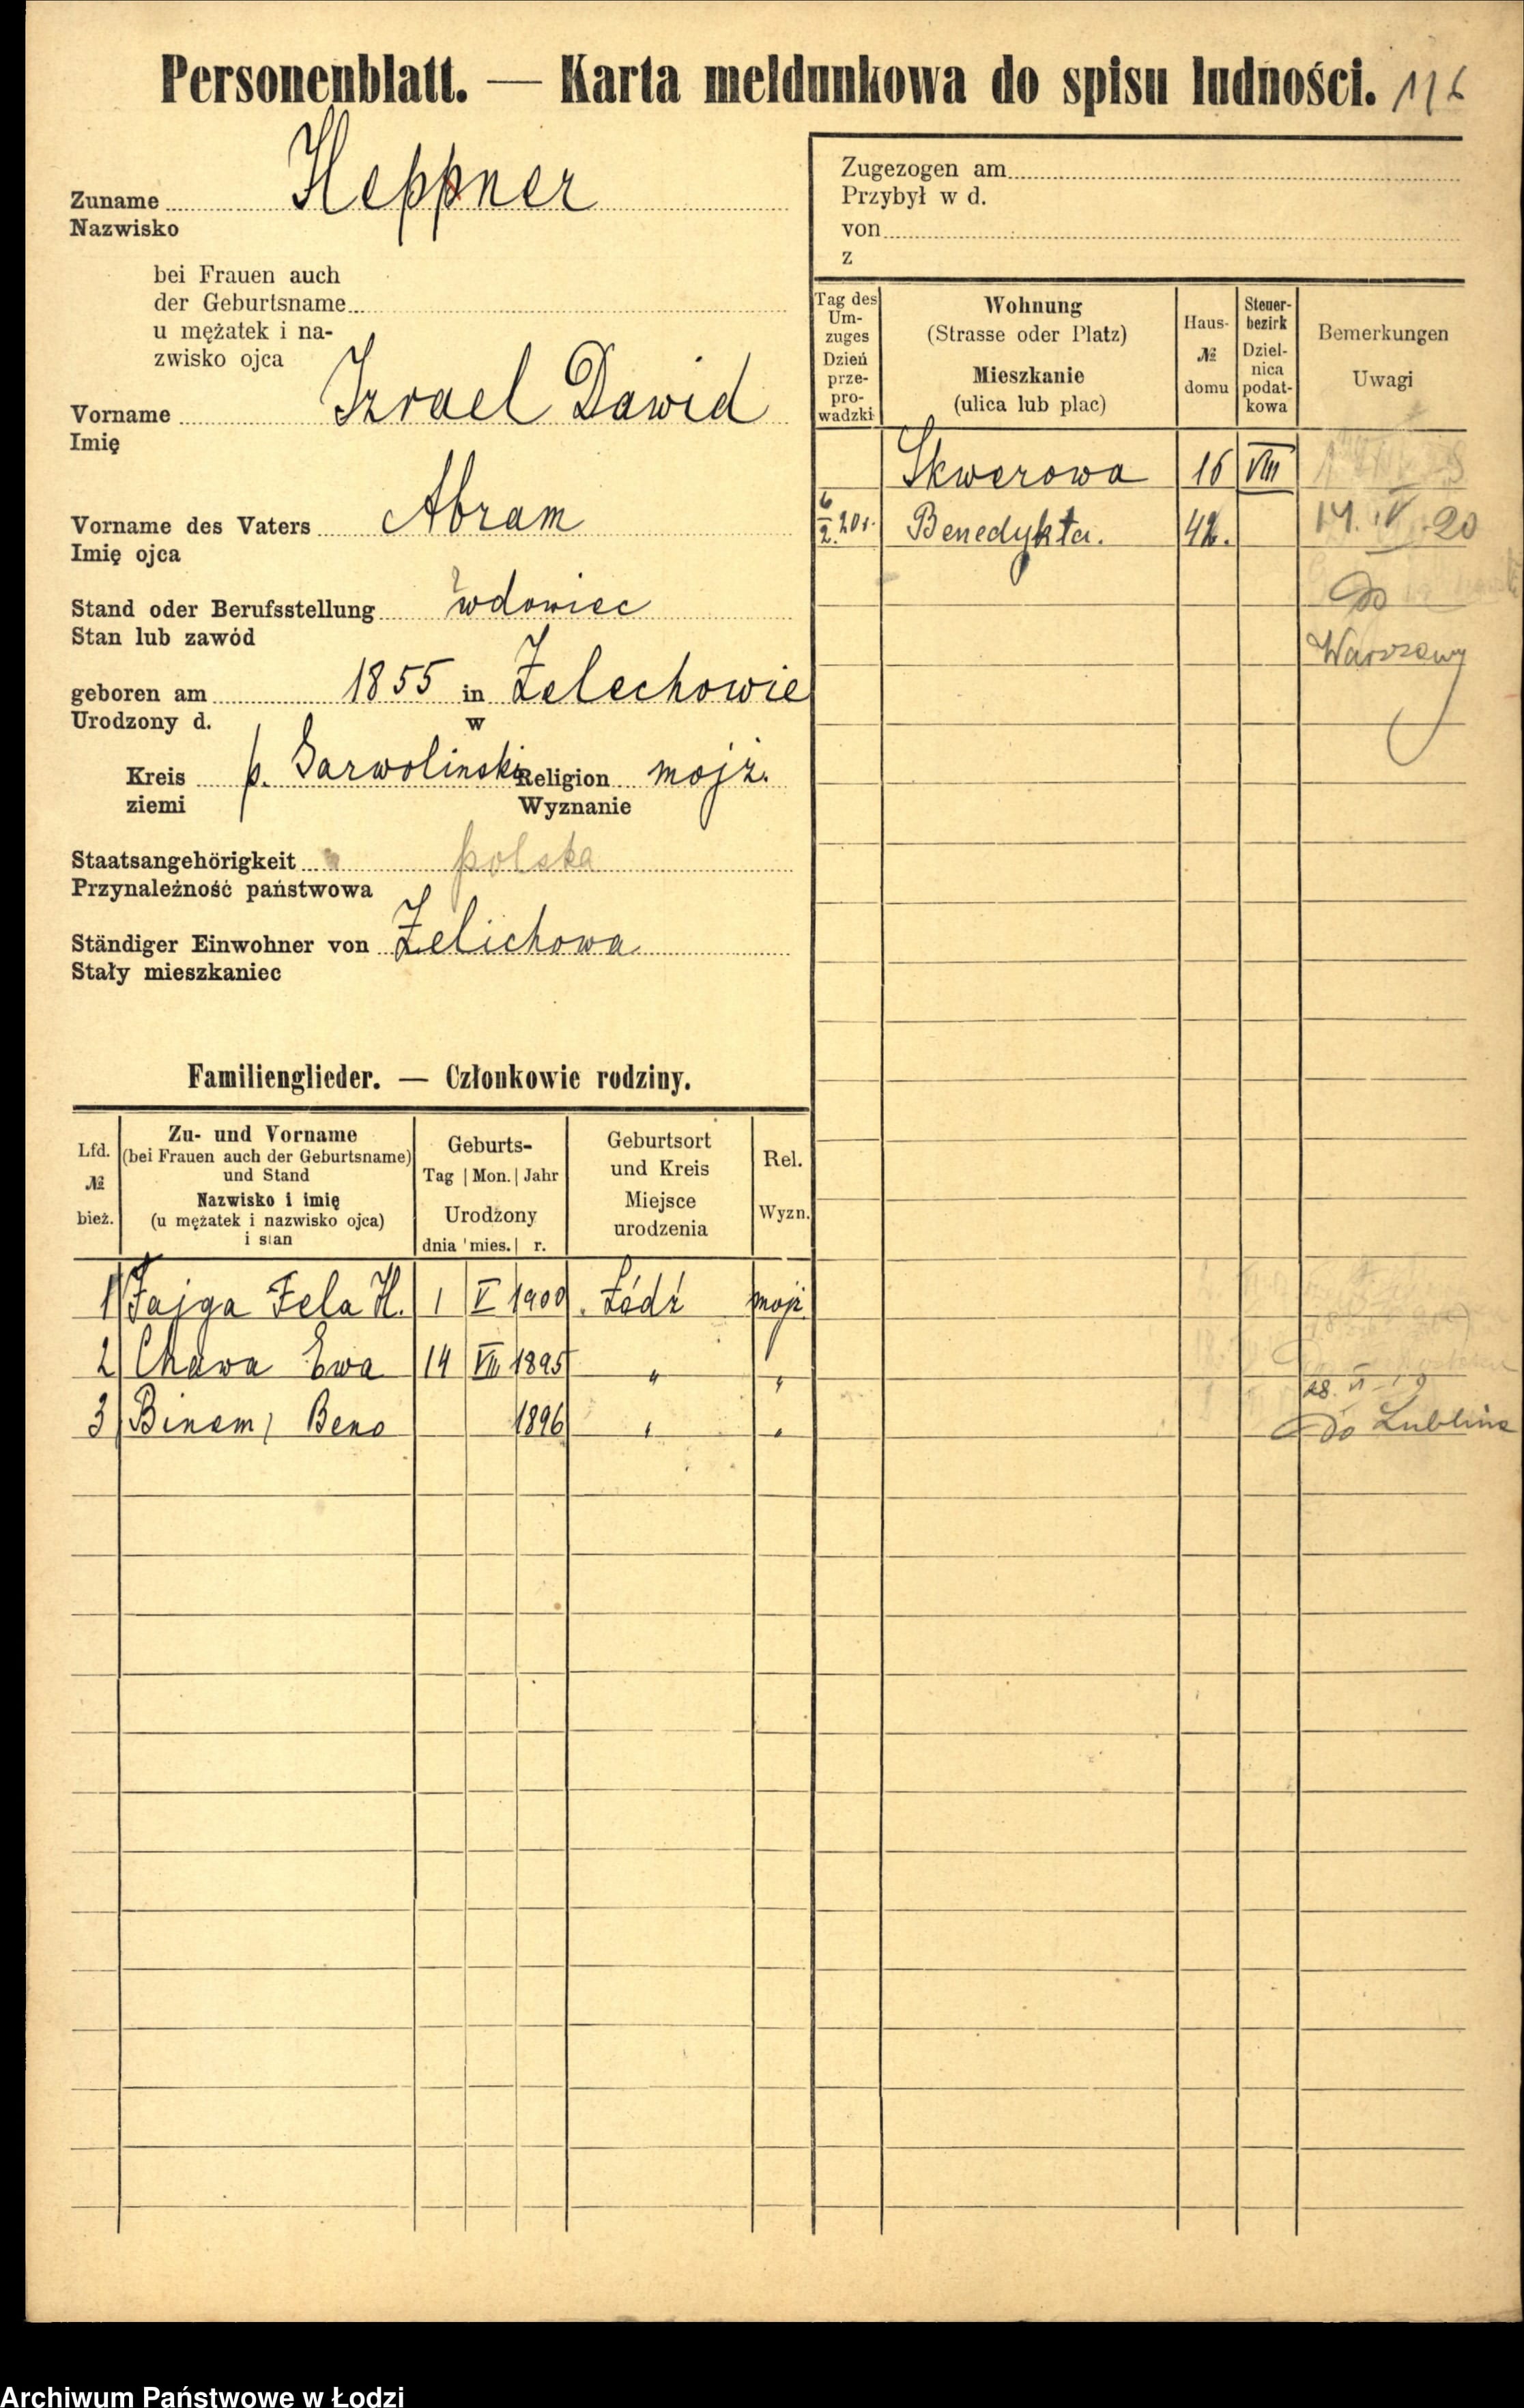 Personenblatt. — Karta meldunkowa do spisu ludności. 116
Zuname Heppner
Nazwisko
bei Frauen auch
der Geburtsname
u mężatek i na-
zwisko ojca
Vorname Izrael Dawid
Imię
Vorname des Vaters Abram
Imię ojca
Stand oder Berufsstellung wdowiec
Stan lub zawód
geboren am 1855 in Żelechowie
Urodzony d. w
Kreis p. Garwoliński Religion mojż.
ziemi Wyznanie
Staatsangehörigkeit polska
Przynależność państwowa
Ständiger Einwohner von Żelichowa
Stały mieszkaniec
Zugezogen am
Przybył w d.
von
z
Tag des Um-zuges Dzień prze-pro-wadzki
Wohnung
(Strasse oder Platz)
Mieszkanie
(ulica lub plac)
Haus- № domu
Steuer-bezirk Dziel-nica podat-kowa
Bemerkungen
Uwagi
Skwerowa 16 VIII
6/2 20 r. Benedykta. 42. 14. IV. 20
do
Warszawy
Familienglieder. — Członkowie rodziny.
Lfd. № bież.
Zu- und Vorname
(bei Frauen auch der Geburtsname)
und Stand
Nazwisko i imię
(u mężatek i nazwisko ojca)
i stan
Geburts-
Tag | Mon. | Jahr
Urodzony
dnia mies. r.
Geburtsort
und Kreis
Miejsce
urodzenia
Rel.
Wyzn.
1 Fajga Fela H. 1 V 1900. Łódź mojż
2 Chawa Ewa 14 VII 1895 " "
28. VI 19
3 Binem, Beno 1896 " " do Lublina
Archiwum Państwowe w Łodzi